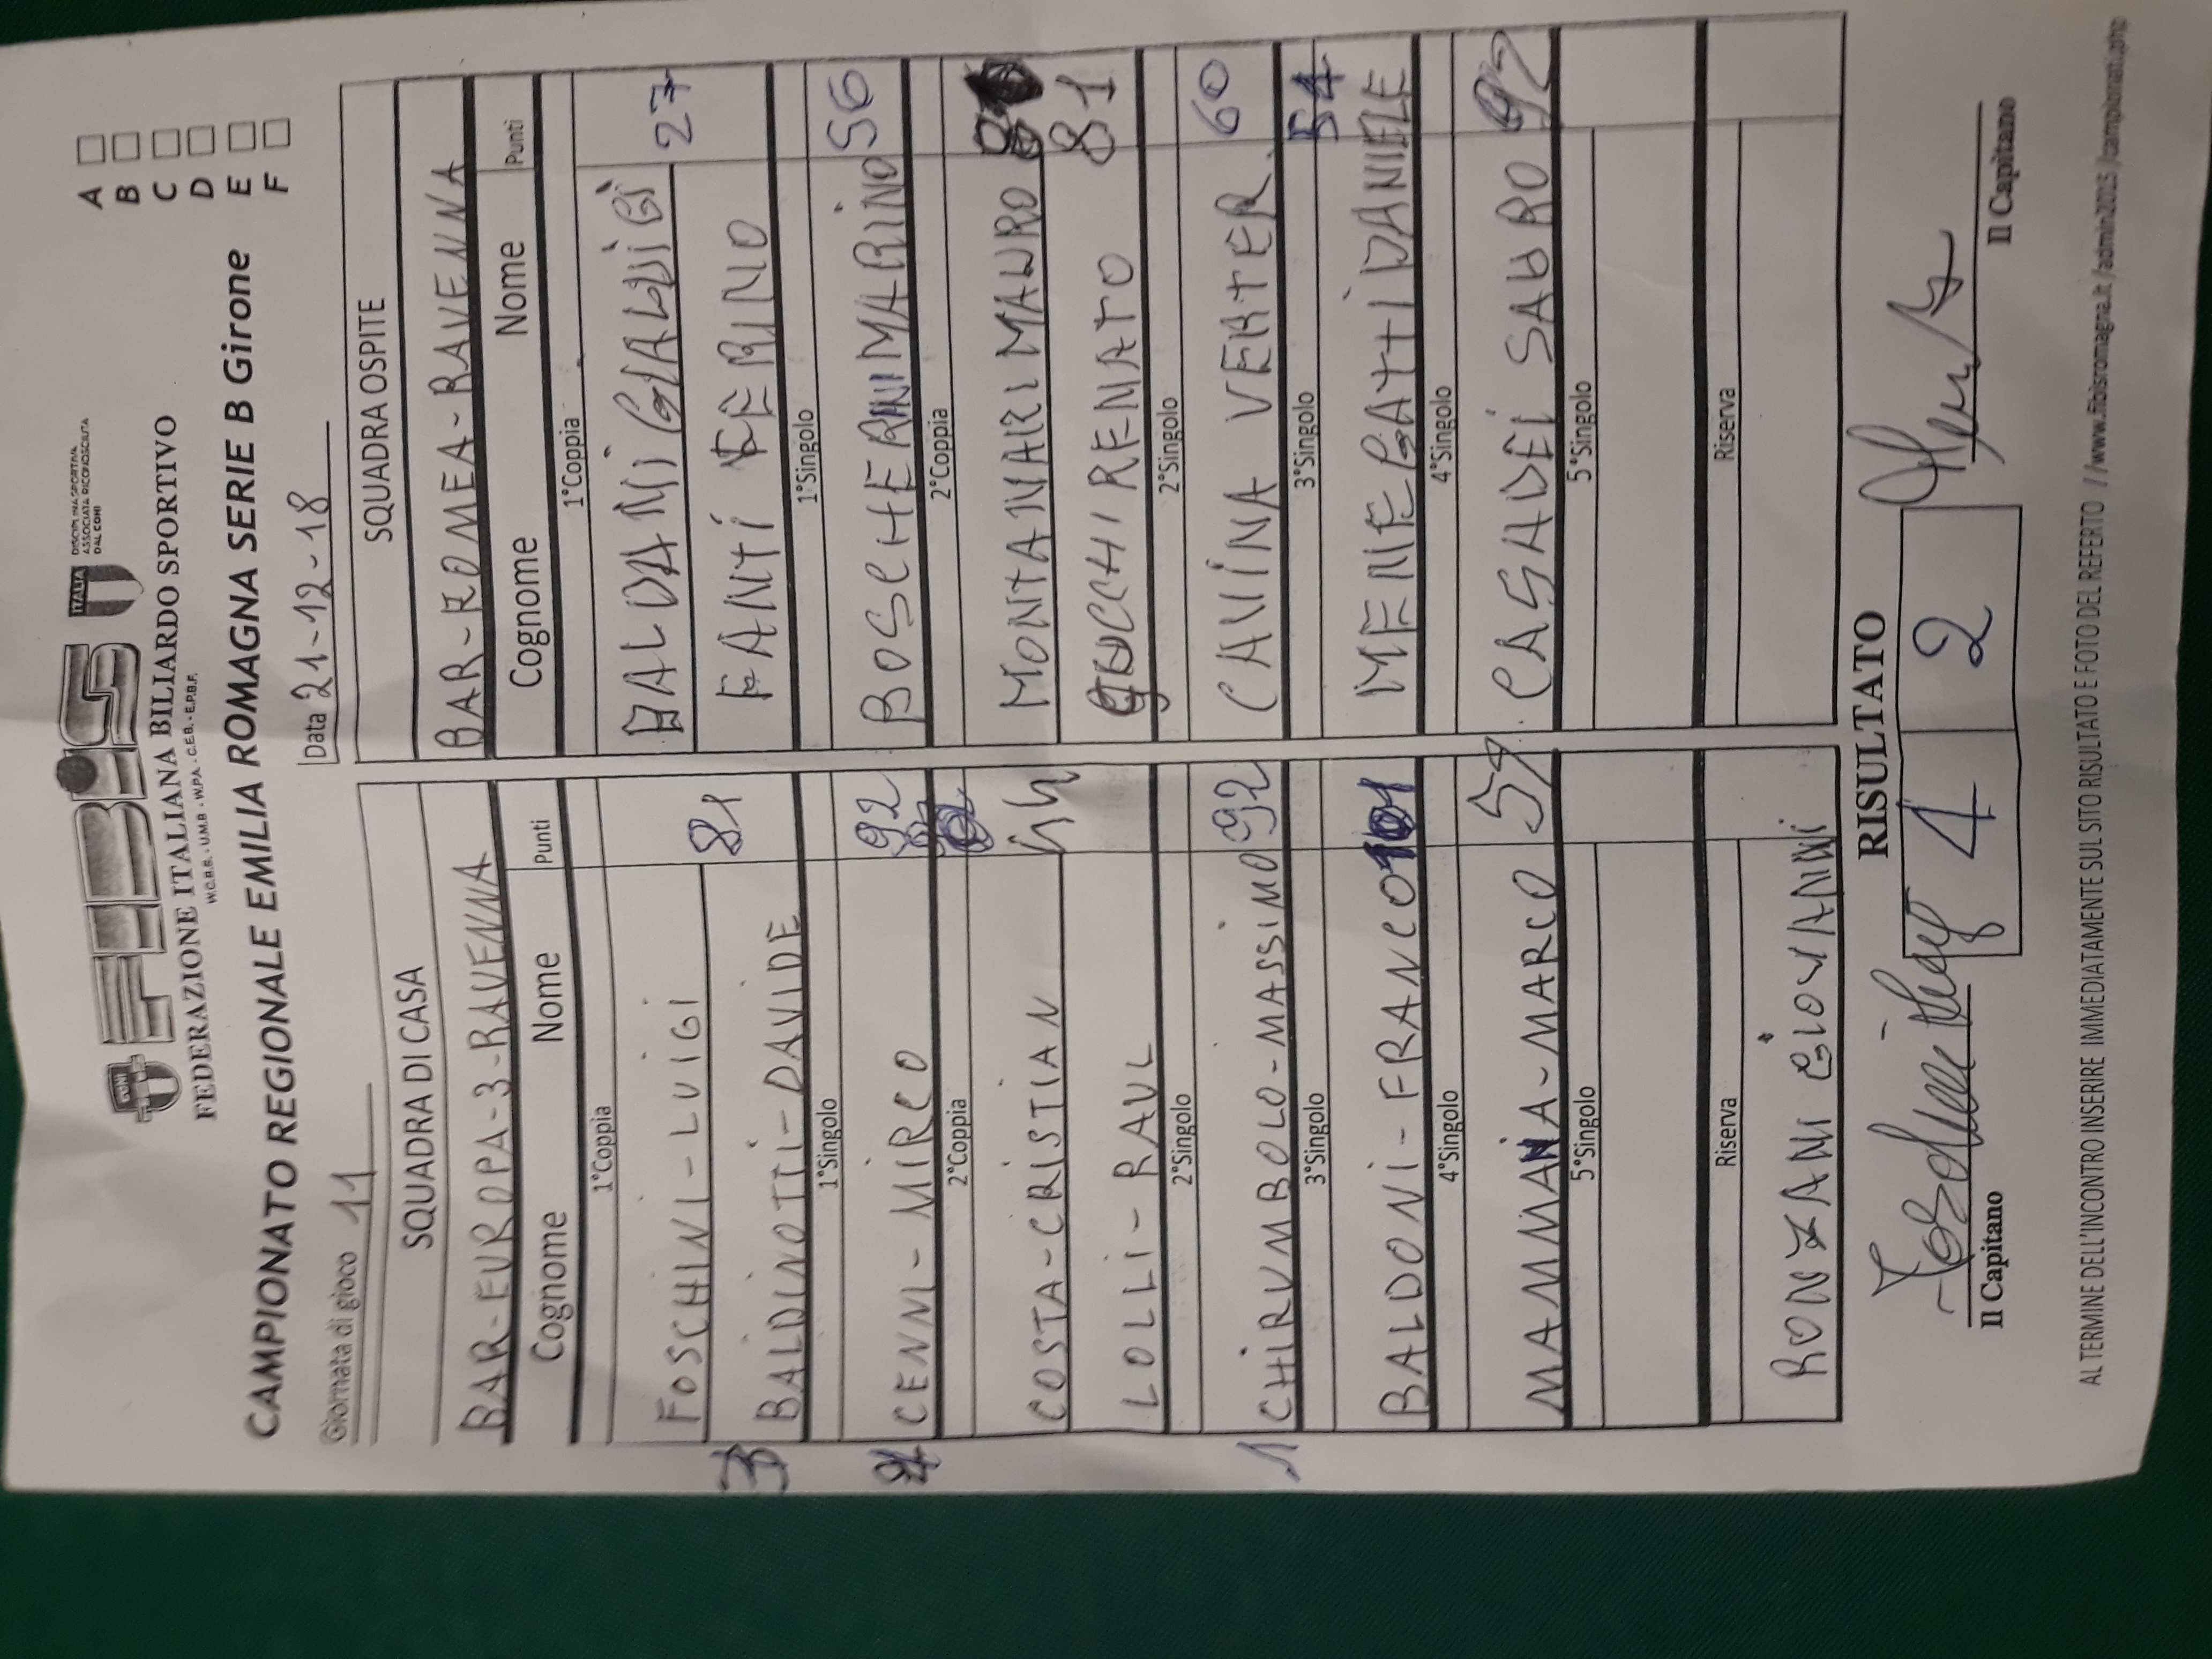 FIBiS
CONI
ITALIA
DISCIPLINA SPORTIVA
ASSOCIATA RICONOSCIUTA
DAL CONI
FEDERAZIONE ITALIANA BILIARDO SPORTIVO
W.C.B.S. - U.M.B - W.P.A. - C.E.B. - E.P.B.F.
CAMPIONATO REGIONALE EMILIA ROMAGNA SERIE B Girone
A
B
C
D
E
F
Giornata di gioco 11
Data 21-12-18
SQUADRA DI CASA
BAR-EUROPA-3-RAVENNA
Cognome Nome Punti
1°Coppia
FOSCHINI-LUIGI
81
BALDINOTTI-DAVIDE
3
1°Singolo
CENNI-MIRCO 92
2°Coppia
COSTA-CRISTIAN
LOLLI-RAUL
2°Singolo
1 CHIRUMBOLO-MASSIMO 92
3°Singolo
BALDONI-FRANCO 101
4°Singolo
MAMMANA-MARCO
5°Singolo
Riserva
RONZANI GIOVANNI
SQUADRA OSPITE
BAR-ROMEA-RAVENNA
Cognome Nome Punti
1°Coppia
BALDANI GIALUIGI 27
FANTI NERINO
1°Singolo
BOSCHERINI MARINO 56
2°Coppia
MONTANARI MAURO
81
RENATO
2°Singolo
CAVINA VERTER 60
3°Singolo
MENEGATTI DANIELE 54
4°Singolo
CASADEI SAURO 92
5°Singolo
Riserva
RISULTATO
4 2
Il Capitano
Il Capitano
AL TERMINE DELL'INCONTRO INSERIRE IMMEDIATAMENTE SUL SITO RISULTATO E FOTO DEL REFERTO //www.fibisromagna.it/admin2015/campionati.php